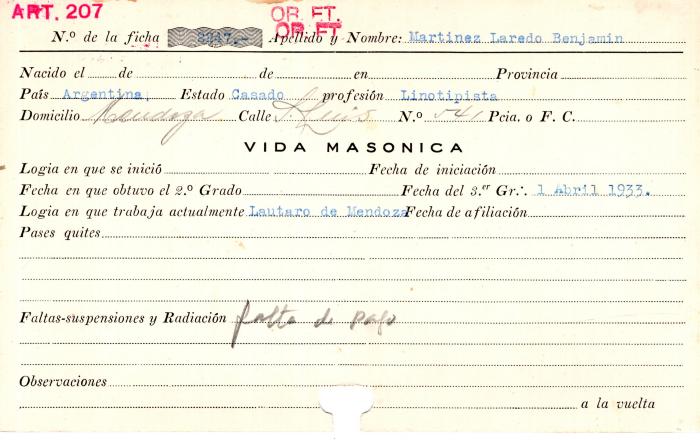 ART. 207
OR. FT.
OR. FT
N.º de la ficha Apellido y Nombre: Martinez Laredo Benjamin
Nacido el de de en Provincia
País Argentina, Estado Casado profesión Linotipista
Domicilio Mendoza Calle S. Luis N.º 541 Pcia. o F. C.
VIDA MASONICA
Logia en que se inició Fecha de iniciación
Fecha en que obtuvo el 2.º Grado Fecha del 3.er Gr∴ 1 Abril 1933.
Logia en que trabaja actualmente Lautaro de Mendoza Fecha de afiliación
Pases quites
Faltas-suspensiones y Radiación falta de pago
Observaciones
a la vuelta